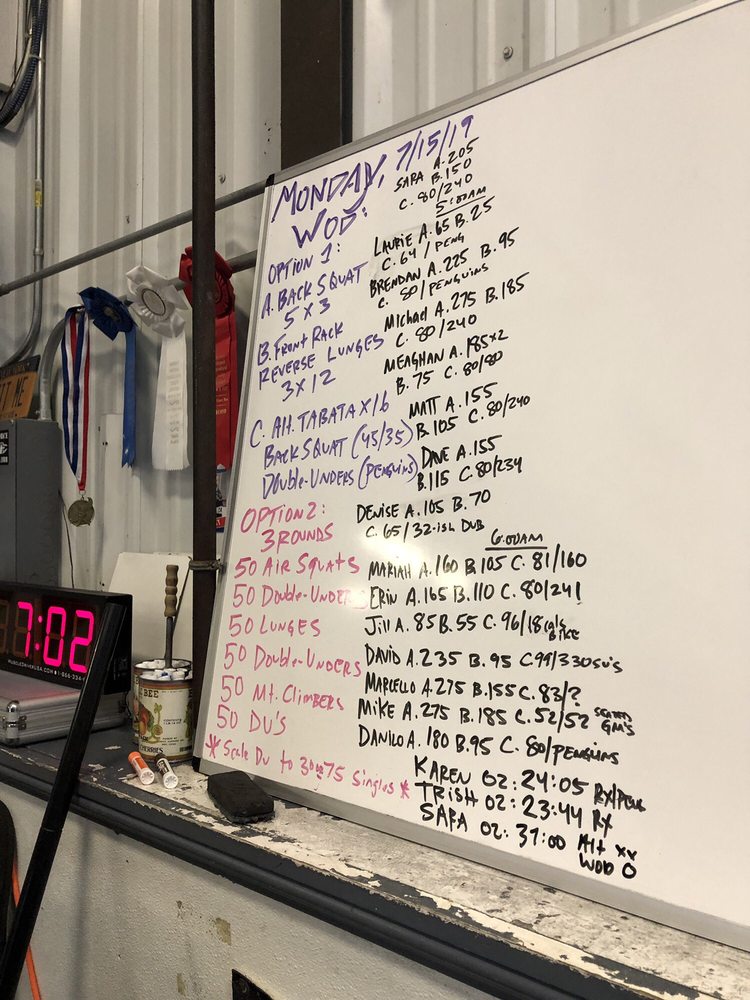 MONDAY, 7/15/19
WOD:
OPTION 1:
A. BACK SQUAT
5 x 3
B. FRONT RACK
REVERSE LUNGES
3x12
C. Alt. TABATA x16
BACK SQUAT (45/35)
DOUBLE-UNDERS (PENGUINS)
OPTION 2:
3 ROUNDS
50 AIR SQUATS
50 DOUBLE-UNDERS
50 LUNGES
50 DOUBLE-UNDERS
50 MT. CLIMBERS
50 DU'S
* Scale DU to 30 or 75 Singles *
SARA A. 205
B. 150
C. 80/240
5:00AM
LAURIE A. 65 B. 25
C. 64/PENG
BRENDAN A. 225 B. 95
C. 80/PENGUINS
Michael A. 275 B. 185
C. 80/240
MEAGHAN A. 185x2
B. 75 C. 80/80
MATT A. 155
B. 105 C. 80/240
DAVE A. 155
B. 115 C. 80/234
DENISE A. 105 B. 70
C. 65/32-ish DUB
6:00AM
MARIAH A. 160 B 105 C. 81/160
ERIN A. 165 B. 110 C. 80/241
Jill A. 85 B. 55 C. 96/18 cal's
BIKE
DAVID A. 235 B. 95 C 99/330 SU'S
MARCELLO A. 275 B. 155 C. 83/?
MIKE A. 275 B. 185 C. 52/52
GM's
DANILO A. 180 B. 95 C. 80/PENGUINS
KAREN O2: 24:05 RX/PEN
TRISH O2: 23:44 RX
SARA O2: 37:00 Alt
WOD
7:02
BEE
CHERRIES
ME